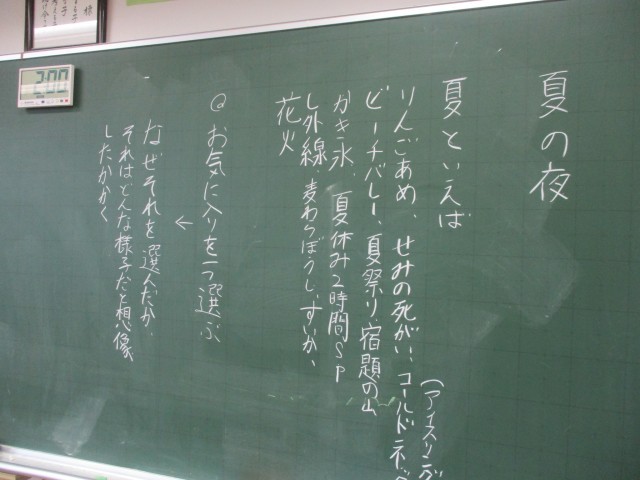 夏の夜
夏といえば
りんごあめ、せみの死がい、コールド
(アイスリング
ビーチバレー、夏祭り宿題の山
かき氷、夏休み2時間SP
し外線、麦わらぼうし、すいか、
花火
@お気に入りを一つ選ぶ
↓
なぜそれを選んだか、
それはどんな様子だと想像
したかかく
2:00